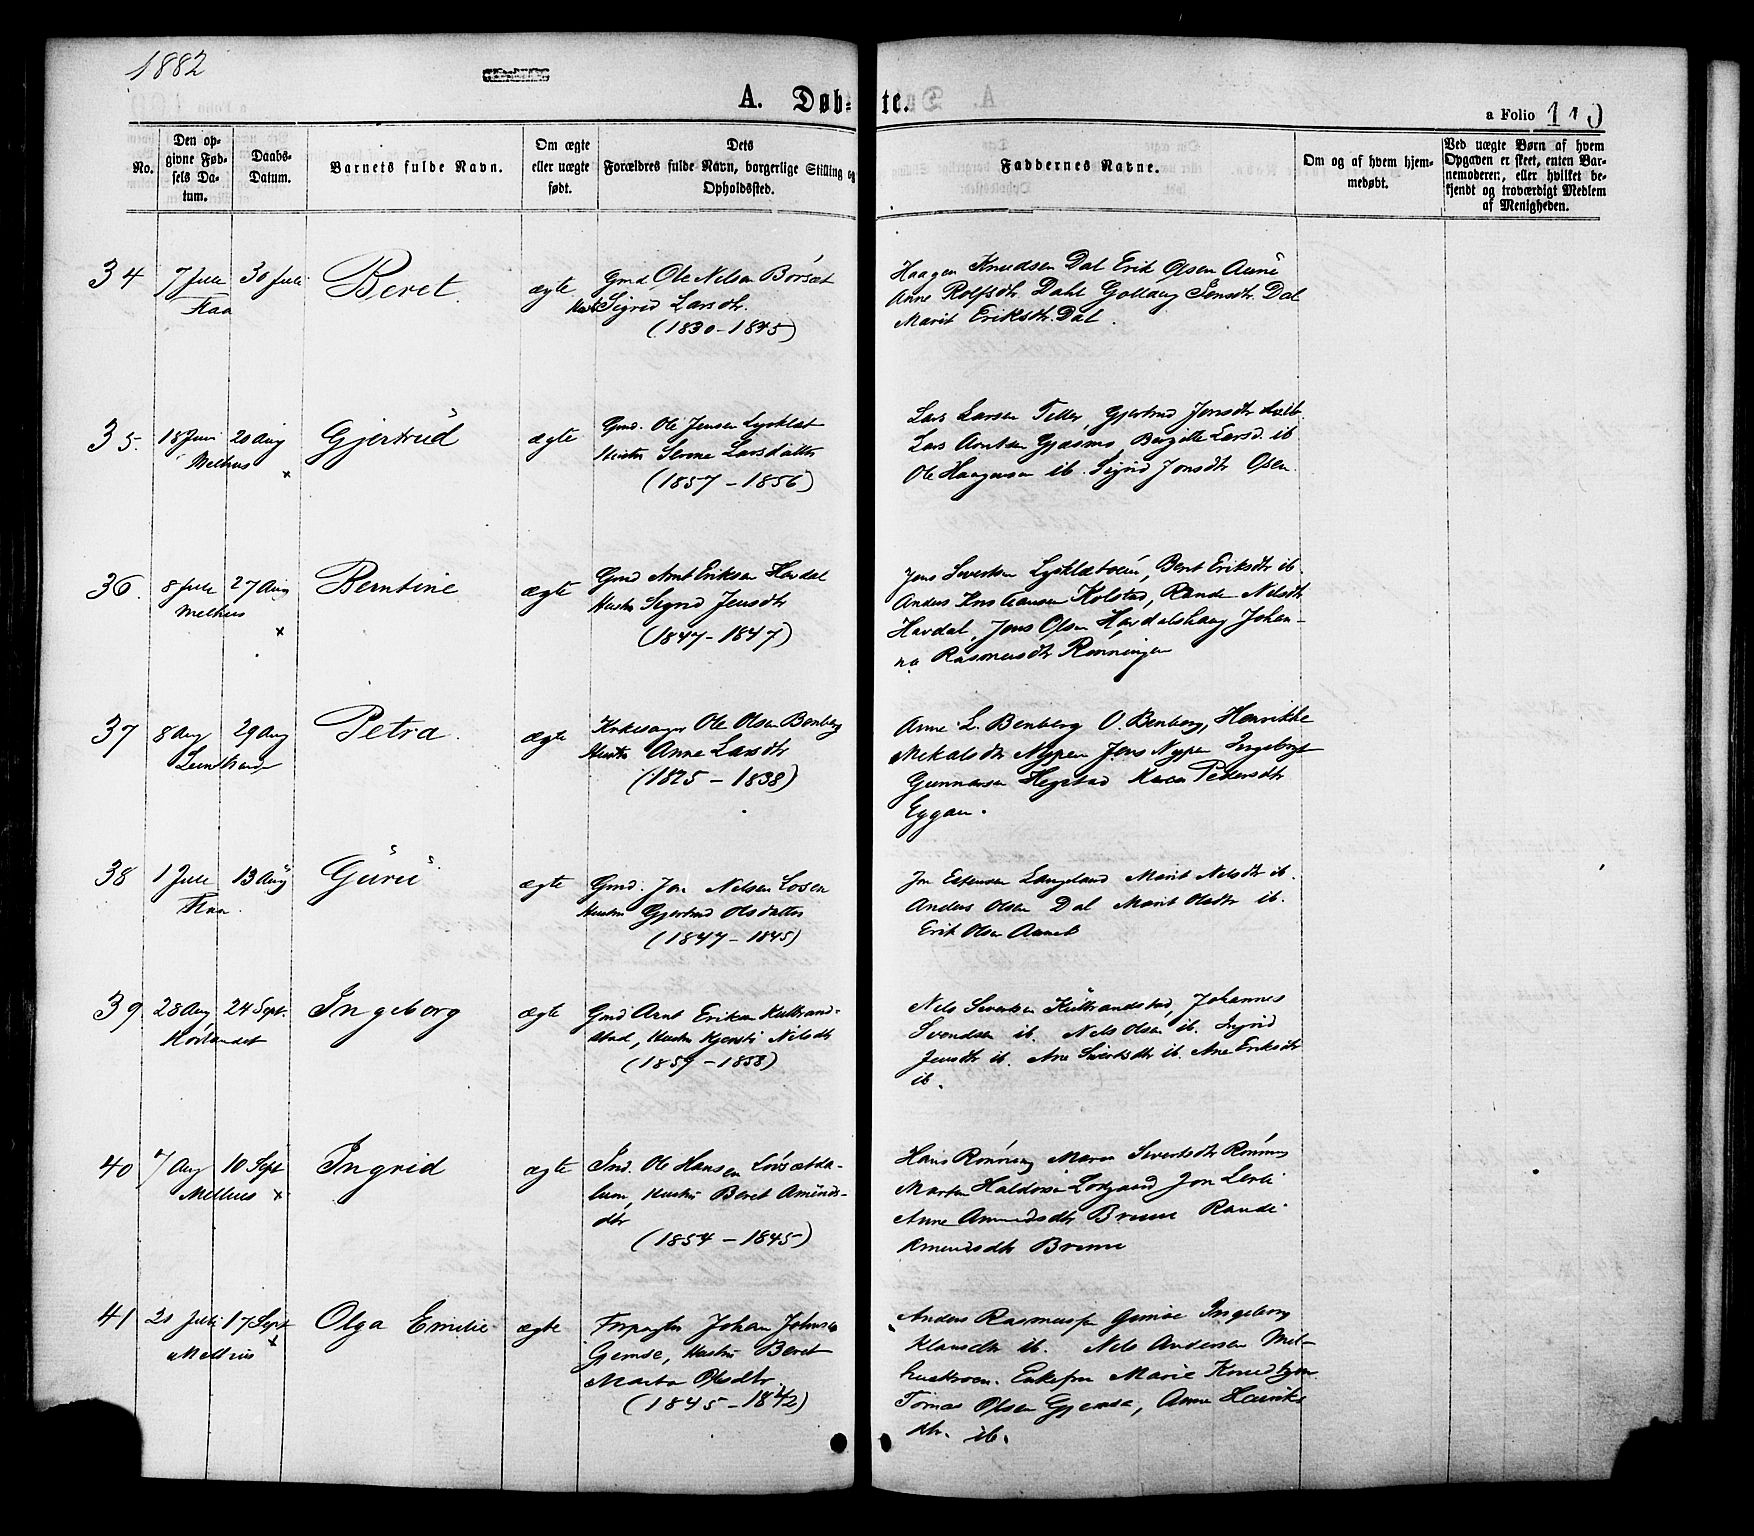 1882
A. Døbte.
a Folio 110
No.
Den opgivne Fødsels Datum.
Daabs-Datum.
Barnets fulde Navn.
Om ægte eller uægte født.
Dets Forældres fulde Navn, borgerlige Stilling og Opholdssted.
Faddernes Navne.
Om og af hvem hjemmedøbt.
Ved uægte Børn af hvem Opgaven er skeet, enten Barnemoderen, eller hvilket bekjendt og troværdigt Medlem af Menigheden.
34 7 Juli 30 Juli Beret. ægte Gmd. Ole Nilsen Borsæt
Flaa Sigrid Larsdtr.
(1830-1845)
Haagen Knudsen Dal Erik Olsen Aune
Anne Rolfsdtr. Dahl Jonsdtr. Dal
Marit Eriksdtr. Dal.
35. 18 Juni 20 Aug Gjertrud ægte Gmd. Ole Jensen Lysklet
Melhus x Hustru Larsdatter
(1857-1856)
Lars Larsen Teller, Gjertrud Jonsdtr
Lars Arntsen Gjæsmo, Bergitte Larsd. ib
Ole Haagensen ib. Sigrid Jonsdtr Osen
36. 8 Juli 27 Aug Berntine ægte Gmd Arnt Eriksen Havdal
Melhus x Hustru Sigrid Jensdtr
(1847-1847)
Jens Sivertsen Beret Eriksdtr ib.
Anders Kristiansen Kolstad, Rande Nilsdtr
Havdal, Jens Olsen Havdalshaug Johan-
na Rasmusdtr Rønningen
37 8 Aug 29 Aug Petra. ægte Kirkesanger Ole Olsen Benberg
Leinstranden Hustru Anne Larsdtr
(1825-1838)
Anne L. Benberg O. Benberg, Henrikke
Mikalsdtr Nypen Jens Nypen Ingeborg
Gunnarsen Hegstad Karen Pedersdtr
Eggan.
38 1 Juli 13 Aug Guru ægte Gmd. Jon Nilsen Losen
Flaa. Hustru Gjertrud Olsdatter
(1847-1845)
Jon Estensen Langeland Marit Nilsdtr ib.
Anders Olsen Dal Marit Olsdtr ib.
Erik Olsen
39 28 Aug 24 Sept. Ingeborg ægte Gmd Arnt Eriksen Kulbrand-
Hølandet stad, Hustru Kjersti Nilsdtr
(1857-1858)
Nils Sivertsen Kulbrandstad, Johannes
Svendsen ib. Nils Olsen ib. Ingrid
Jensdtr ib. Ane Sivertsdtr ib. Ane Eriksdtr
ib.
40 7 Aug 10 Sept Ingrid ægte Ind. Ole Hansen Losetda-
Melhus x lum, Hustru Beret Amunds-
dtr
(1854-1845)
Hans Rønning Maren Sivertsdtr Rønning
Morten Haldorsen Losgaard Jon Lerli
Anne Amundsdtr Brune Rande
Amundsdtr Brune
41 21 Juli 17 Sept Olga Emilie ægte Forpagter Johan Johnsen
Melhus x Gjemse, Hustru Beret
Marta Olsdtr.
(1845-1842)
Anders Rasmussen Gimse Ingeborg
Klausdtr ib. Nils Andersen Mel-
Enkefru Marie
Tomas Olsen Gjemse, Anne Henriks
dtr. ib.